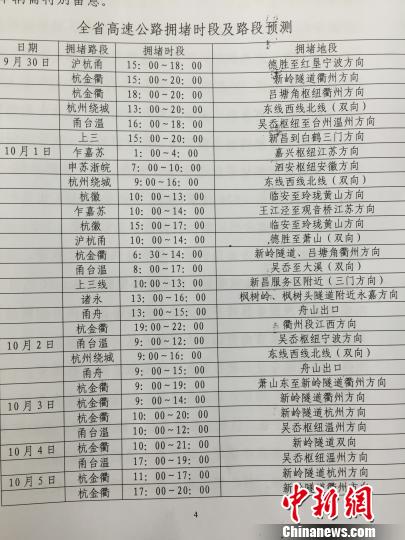 全省高速公路拥堵时段及路段预测
日期 拥堵路段 拥堵时段 拥堵地段
9月30日 沪杭甬 15:00~18:00 德胜至红垦宁波方向
杭金衢 15:00~20:00 新岭隧道衢州方向
杭金衢 18:00~20:00 吕塘角枢纽衢州方向
杭州绕城 13:00~20:00 东线西线北线(双向)
甬台温 16:00~18:00 吴岙枢纽至台州温州方向
上三 15:00~20:00 新昌到白鹤三门方向
10月1日 乍嘉苏 1:00~4:00 嘉兴枢纽江苏方向
申苏浙皖 7:00~10:00 泗安枢纽安徽方向
杭州绕城 9:00~16:00 东线西线北线(双向)
杭徽 10:00~13:00 临安至玲珑黄山方向
乍嘉苏 10:00~14:00 王江泾至观音桥江苏方向
杭徽 15:00~17:00 临安至玲珑黄山方向
沪杭甬 10:00~14:00 德胜至萧山(双向)
杭金衢 6:30~14:00 新岭隧道、吕塘角衢州方向
甬台温 8:00~17:00 吴岙至大溪(双向)
上三线 10:00~13:00 新昌服务区附近(三门方向)
诸永 13:00~16:00 枫树岭、枫树头隧道附近永嘉方向
甬舟 13:00~15:00 舟山出口
杭金衢 19:00~22:00 衢州段江西方向
10月2日 甬台温 9:00~12:00 吴岙枢纽宁波方向
杭州绕城 9:00~16:00 东线西线北线(双向)
甬舟 9:00~15:00 舟山出口
杭金衢 9:00~14:00 萧山东至新岭隧道衢州方向
10月3日 杭金衢 9:00~19:00 新岭隧道衢州方向
杭金衢 10:00~20:00 新岭隧道杭州方向
甬台温 10:00~12:00 吴岙枢纽温州方向
10月4日 杭金衢 10:00~21:00 新岭隧道双向
甬台温 17:00~19:00 吴岙枢纽温州方向
10月5日 杭金衢 11:00~17:00 新岭隧道杭州方向
杭金衢 17:00~20:00 新岭隧道衢州方向
4
中新网
Chinanews.com